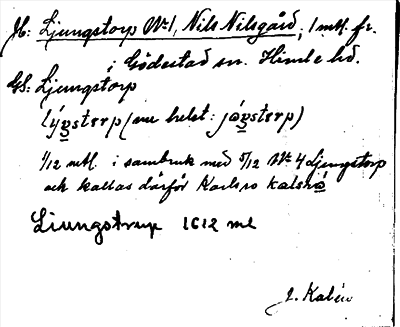 Jb: Ljungstorp No 1, Nils Nilsgård, 1 mtl. fr.
i Gödestad sn. Himle hd.
GS. Ljungstorp
lýȯsterp (nu helst: jóȯsterp)
1/12 mtl. i sambruk med 5/12 No 4 Ljungstorp
och kallas därför Karlsro kalsró
Liungstrup 1612 ml
J. Kalén